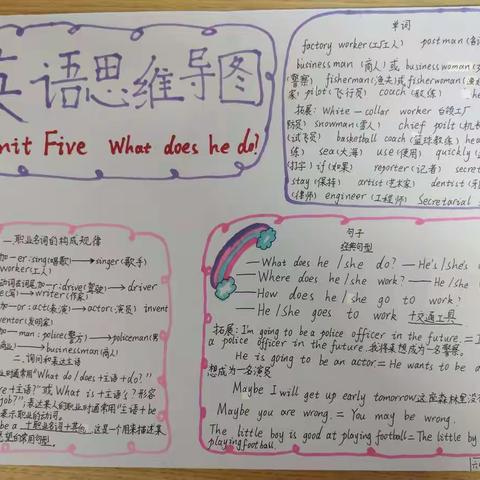 英语思维导图
Unit Five What does he do?
单词
factory worker(工厂工人) postman
businessman (商人) 或 businesswoman
(警察) fisherman(渔夫)或 fisherwoman
pilot(飞行员) coach(教练)
拓展: white-collar worker 白领工厂
snowman(雪人) chief pilot(机长
(试飞员) basketball coach(篮球教练) hea
sea(大海) use(使用) quickly
(打字) if(如果) reporter(记者) secret
stay(保持) artist(艺术家) dentist
(律师) engineer(工程师) Secretarial
一.职业名词的构成规律
加-er:sing(唱歌)→singer(歌手)
worker(工人)
加-r:drive(驾驶)→driver
→writer(作家)
加-or:act(表演)→actor(演员) invent
ventor(发明家)
加-man:police(警方)→policeman
→businessman(商人)
二.询问和表达主语
时通常用"What do/does+主语+do?"
are+主语?"或What is+主语's 形容
job?";表达某人的职业时通常用"主语+be
表示职业的动词。
be a +职业名词+其他。这是一个用来描述某
愿望的常用句型。
句子
经典句型
—What does he/she do? —He's/she's
—Where does he/she work? —He/she
—How does he/she go to work?
—He/she goes to work +交通工具
拓展:I'm going to be a police officer in the future.=I
a police officer in the future.我将来想成为一名警察。
He is going to be an actor=He wants to be a
想成为一名演员
Maybe I will get up early tomorrow
Maybe you are wrong.=You may be wrong.
The little boy is good at playing football=The little boy
playing football.